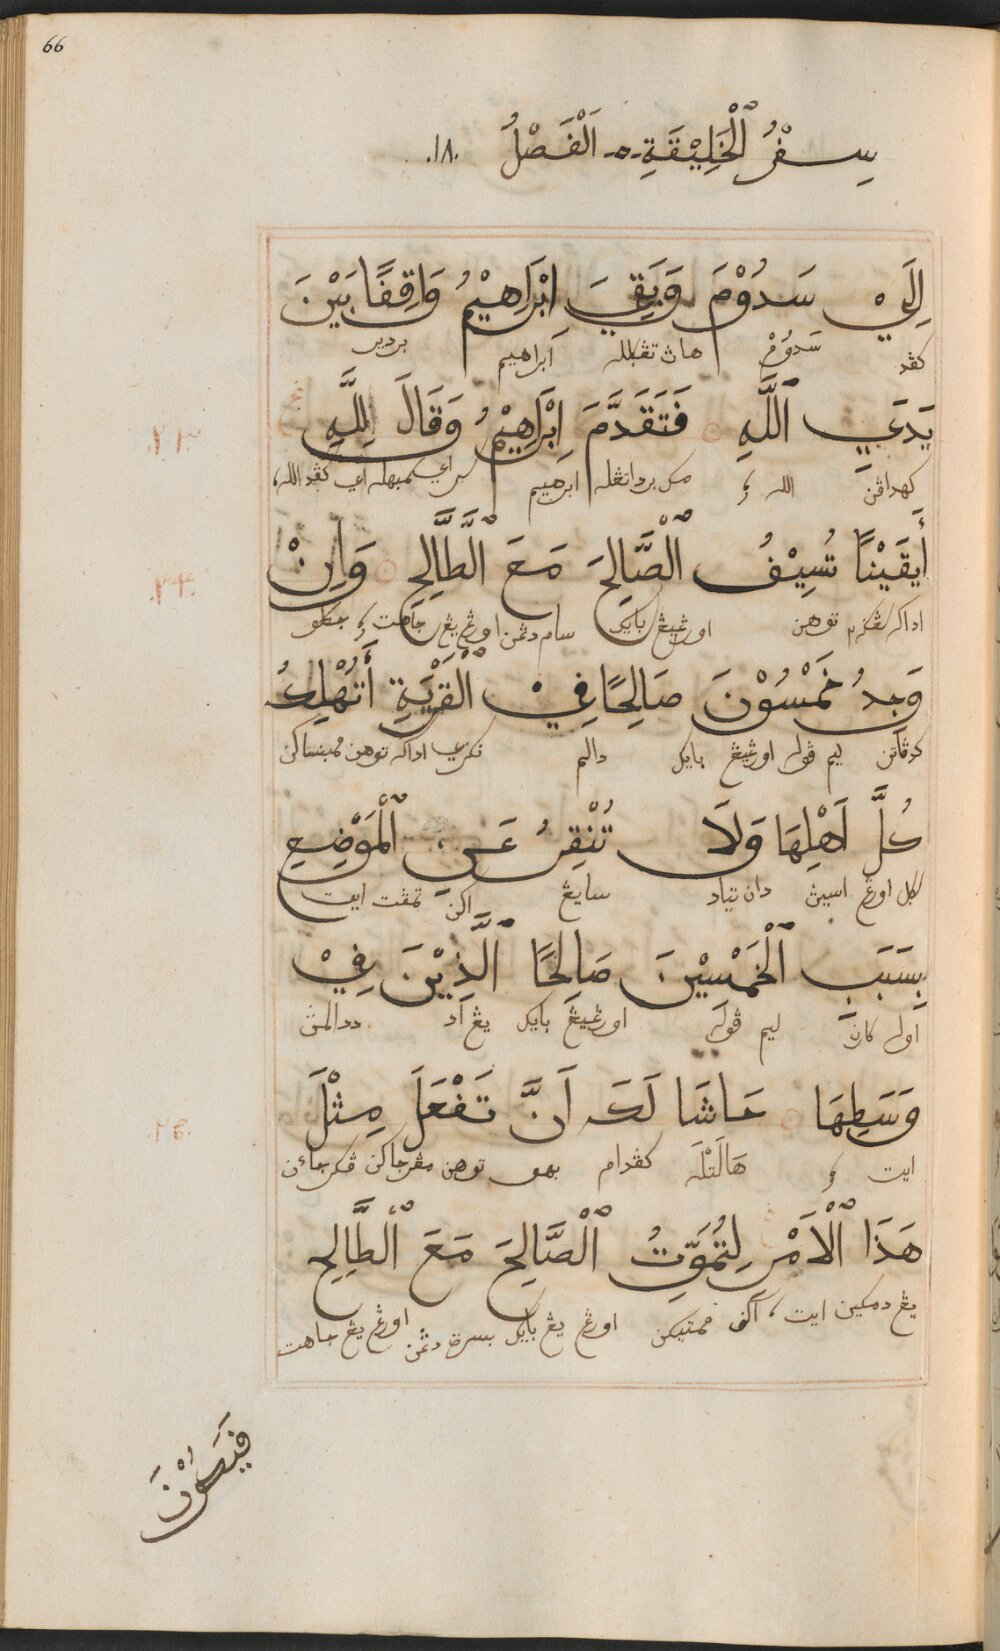 66
سِفْرُ ٱلْخَلِيْقَةِ ـ٥ـ اَلْفَصْلُ .١٨.
اِلَيْ سَدُوْمَ وَبَقِيَ اِبْرَاهِيْمُ وَاقِفًا بَيْنَ
كڤد سَدُوْمْ تڠݢله اَبراهيم بردير
يَدَيِ ٱللَّهِ فَتَقَدَّمَ اِبْرَاهِيْمُ وَقَالَ لِلَّهِ
.٢٣.
كهداڤن الله مك برداتڠله ابرهيم سمبهله اي كڤد الله،
أَيَقَيْنًا تُسِيْفُ ٱلْصَّالِحَ مَعَ ٱلْطَّالِحِ وَاِنْ
.٢٤.
اداكه توهن اورڠيڠ بايک سام دڠن اورڠ يڠ جاهت جكلو
وَجِدُ خَمْسُوْنَ صَالِحًا فِيْ ٱلْقَرْيَةِ أَتُهْلِكُ
كدڤاتن ليم ڤوله اورڠيڠ بايک دالم نكري اداكه توهن ممبنساكن
كُلَّ اَهْلِهَا وَلَا تُنْقِرُ عَيِ ٱلْمَوْضِعِ
سكل اورڠ اسيڽ دان تياد سايڠ اكن تمڤت ايت
بِسَبَبِ ٱلْخَمْسِيْنَ صَالِحًا ٱلَّذِيْنَ فِيْ
اوله كارن ليم ڤوله اورڠيڠ بايک يڠ اد ددالمڽ
وَسَطِهَا حَاشَا لَكَ اَنَّ تَفْعَلَ مِثْلَ
.٢٥.
ايت هَالَتْلَه كڤدام بهو توهن مڠرجاكن ڤكرجاءن
هَذَا ٱلْاَمْرِ لِتُمَوِّتُ ٱلْصَّالِحَ مَعَ ٱلْطَّالِحِ
يڠ دمكين ايت، اكن ممتيكن اورڠ يڠ بايک بسرة دڠن اورڠ يڠ جاهت
فَيَكُوْنَ